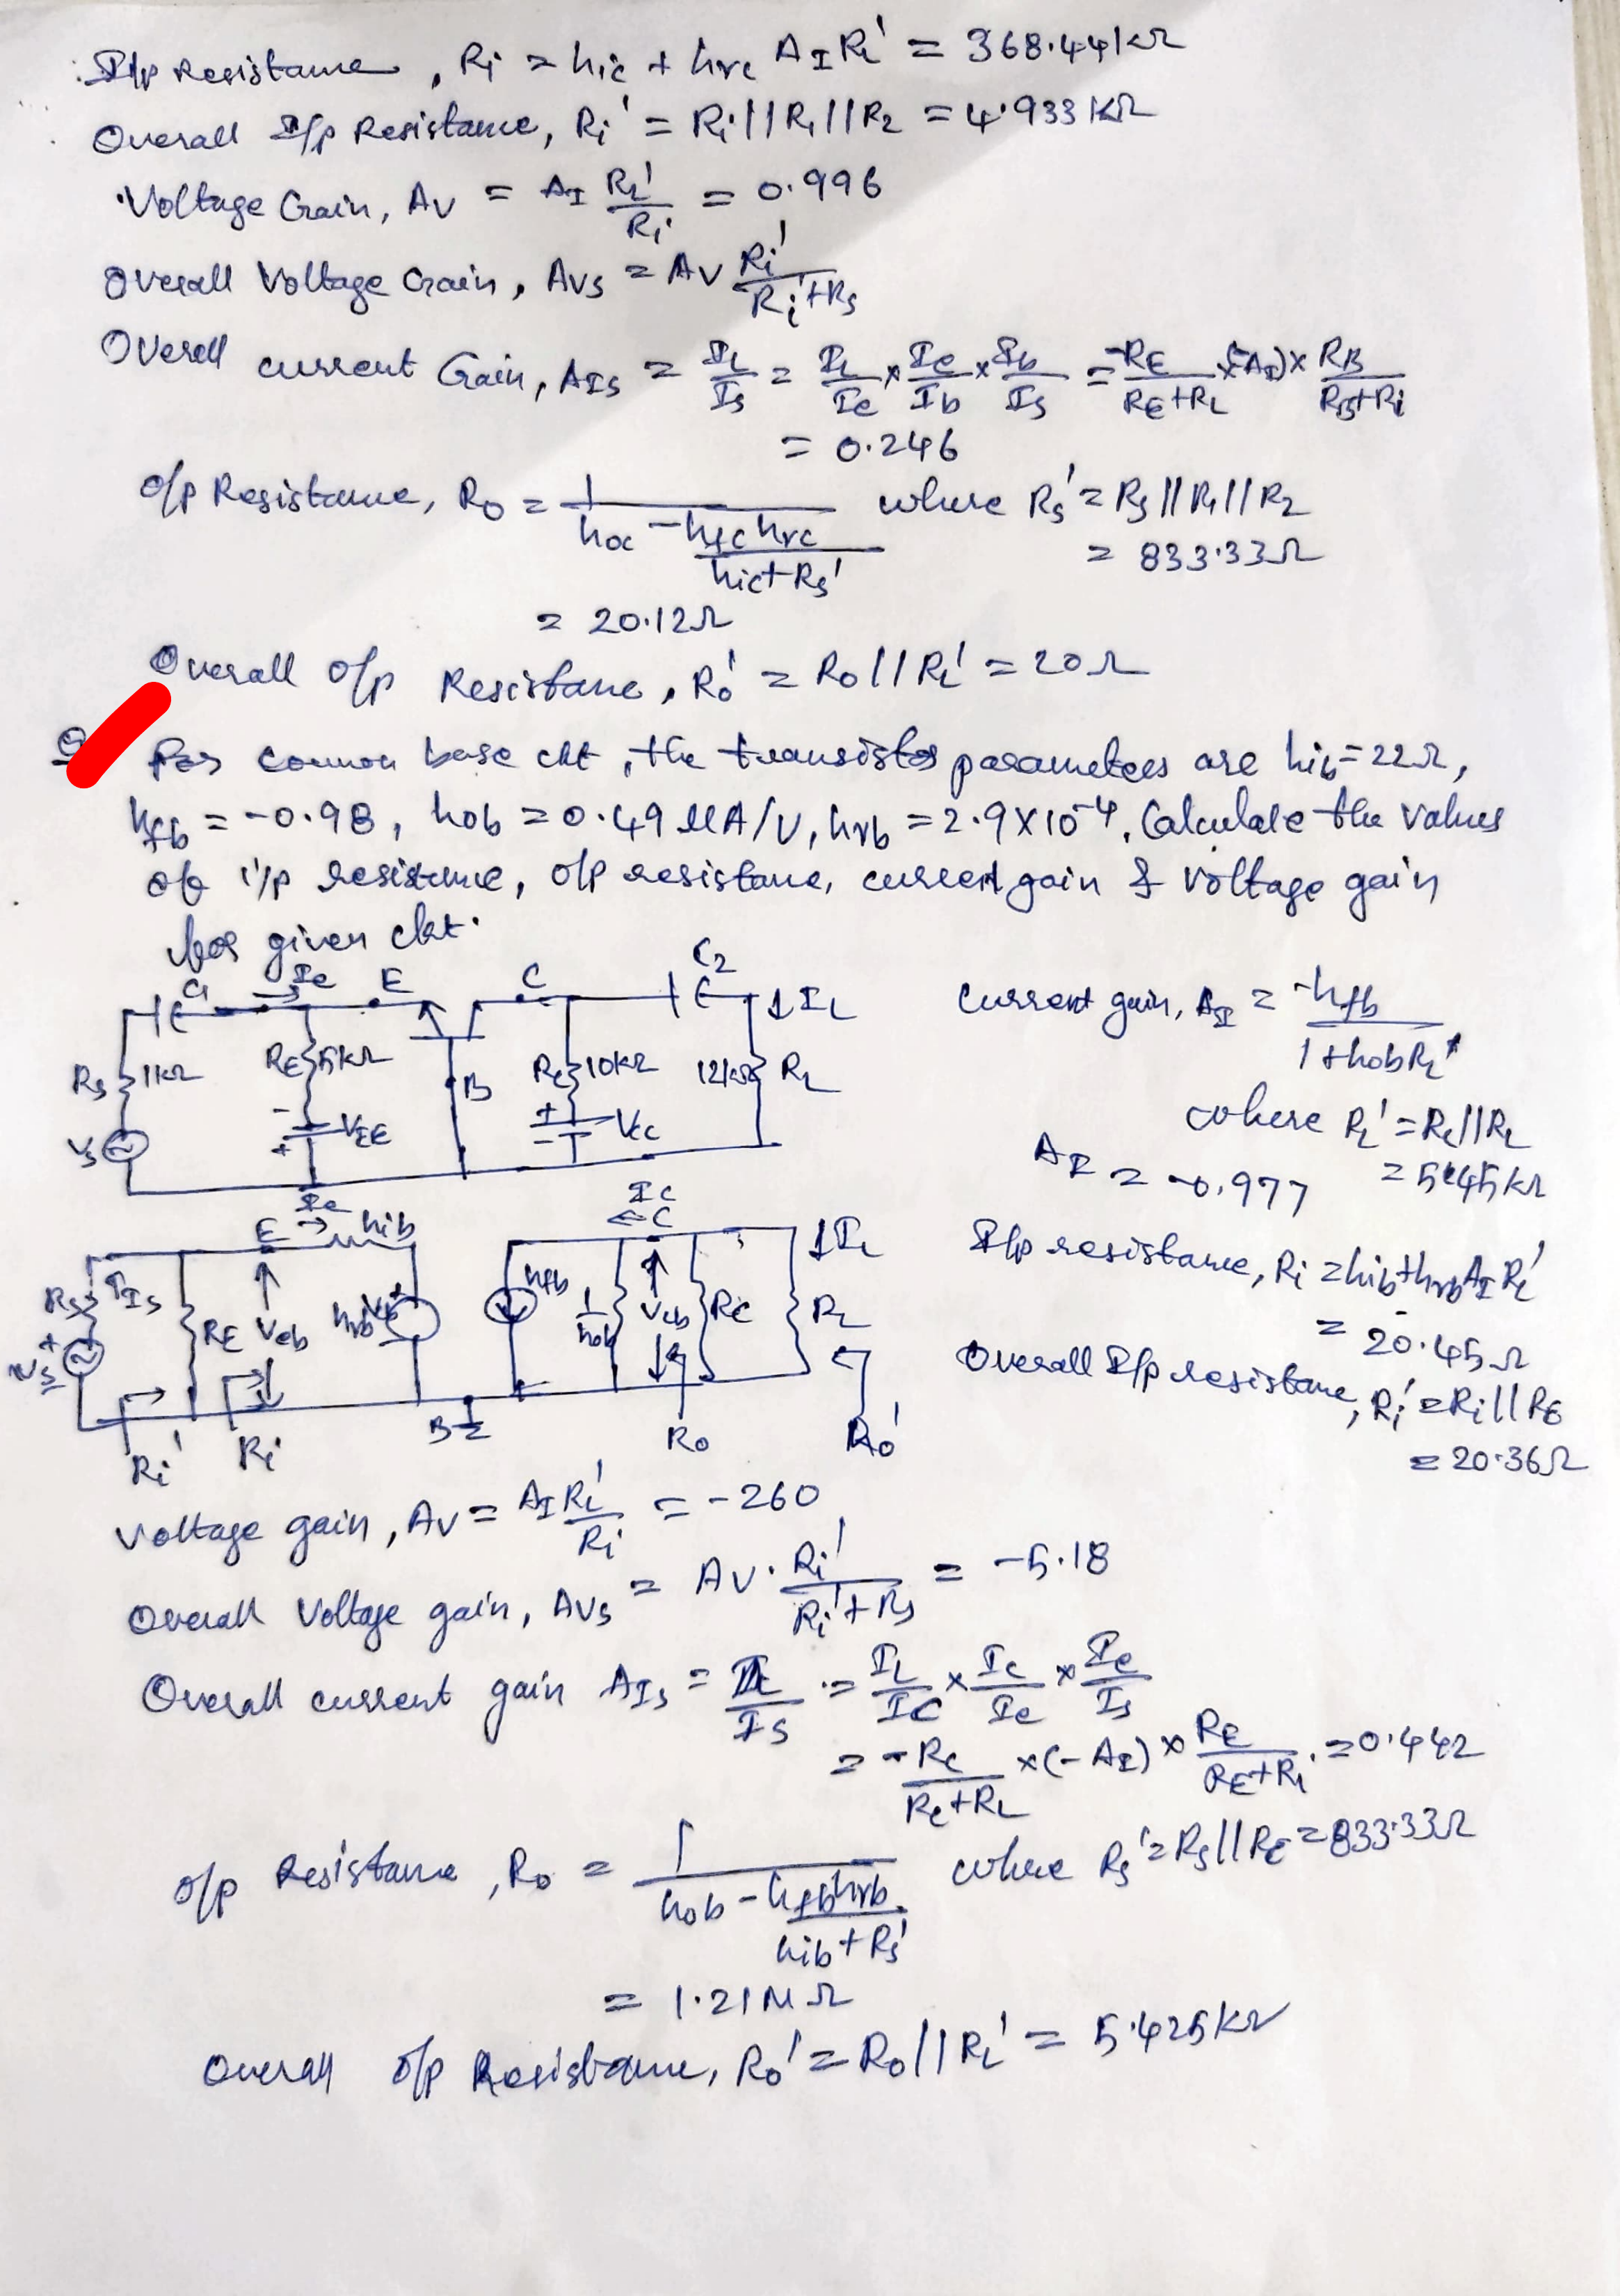 I/p Resistance, Ri = hic + hrc AI RL' = 368.44kΩ
Overall I/p Resistance, Ri' = Ri||R1||R2 = 4.933 KΩ
Voltage Gain, Av = AI RL'/Ri = 0.996
Overall Voltage Gain, Avs = Av Ri'/Ri'+Rs
Overall current Gain, AIs = IL/Is = IL/Ie × Ie/Ib × Ib/Is = -RE/RE+RL × (-AI) × RB/RB+Ri
= 0.246
o/p Resistance, Ro = 1/hoc - hfc hrc/hic+Rs' where Rs' = Rs||R1||R2
= 833.33Ω
= 20.12Ω
Overall o/p Resistane, Ro' = Ro||RL' = 20Ω
Q For common base ckt, the transistor parameters are hib=22Ω,
hfb = -0.98, hob = 0.49 μA/V, hrb = 2.9×10-4. Calculate the values
of i/p resistance, o/p resistane, current gain & voltage gain
for given ckt.
C1 Ie E C C2 IL
Rs 1kΩ RE 5kΩ B Rc 10KΩ 12kΩ RL
Vs - VEE + + - Vcc
current gain, AI = -hfb/1+hobRL'
where RL' = Rc||RL
= 5.45kΩ
AI = -0.977
E Ie hib Ic C IL
Rs Is RE Veb hrb hfb 1/hob Vcb Rc RL
+ Vs Ri' Ri B Ro Ro'
I/p resistance, Ri = hib+hrbAI RL'
= 20.45Ω
Overall I/p resistane, Ri' = Ri||RE
= 20.36Ω
Voltage gain, Av = AI RL'/Ri = -260
Overall Voltage gain, Avs = Av. Ri'/Ri'+Rs = -5.18
Overall current gain AIs = IL/Is = IL/Ic × Ic/Ie × Ie/Is
= -Rc/Rc+RL × (-AI) × RE/RE+Ri = 0.442
o/p Resistance, Ro = 1/hob - hfbhrb/hib+Rs' where Rs' = Rs||RE = 833.33Ω
= 1.21MΩ
Overall o/p Resistance, Ro' = Ro||RL' = 5.425kΩ